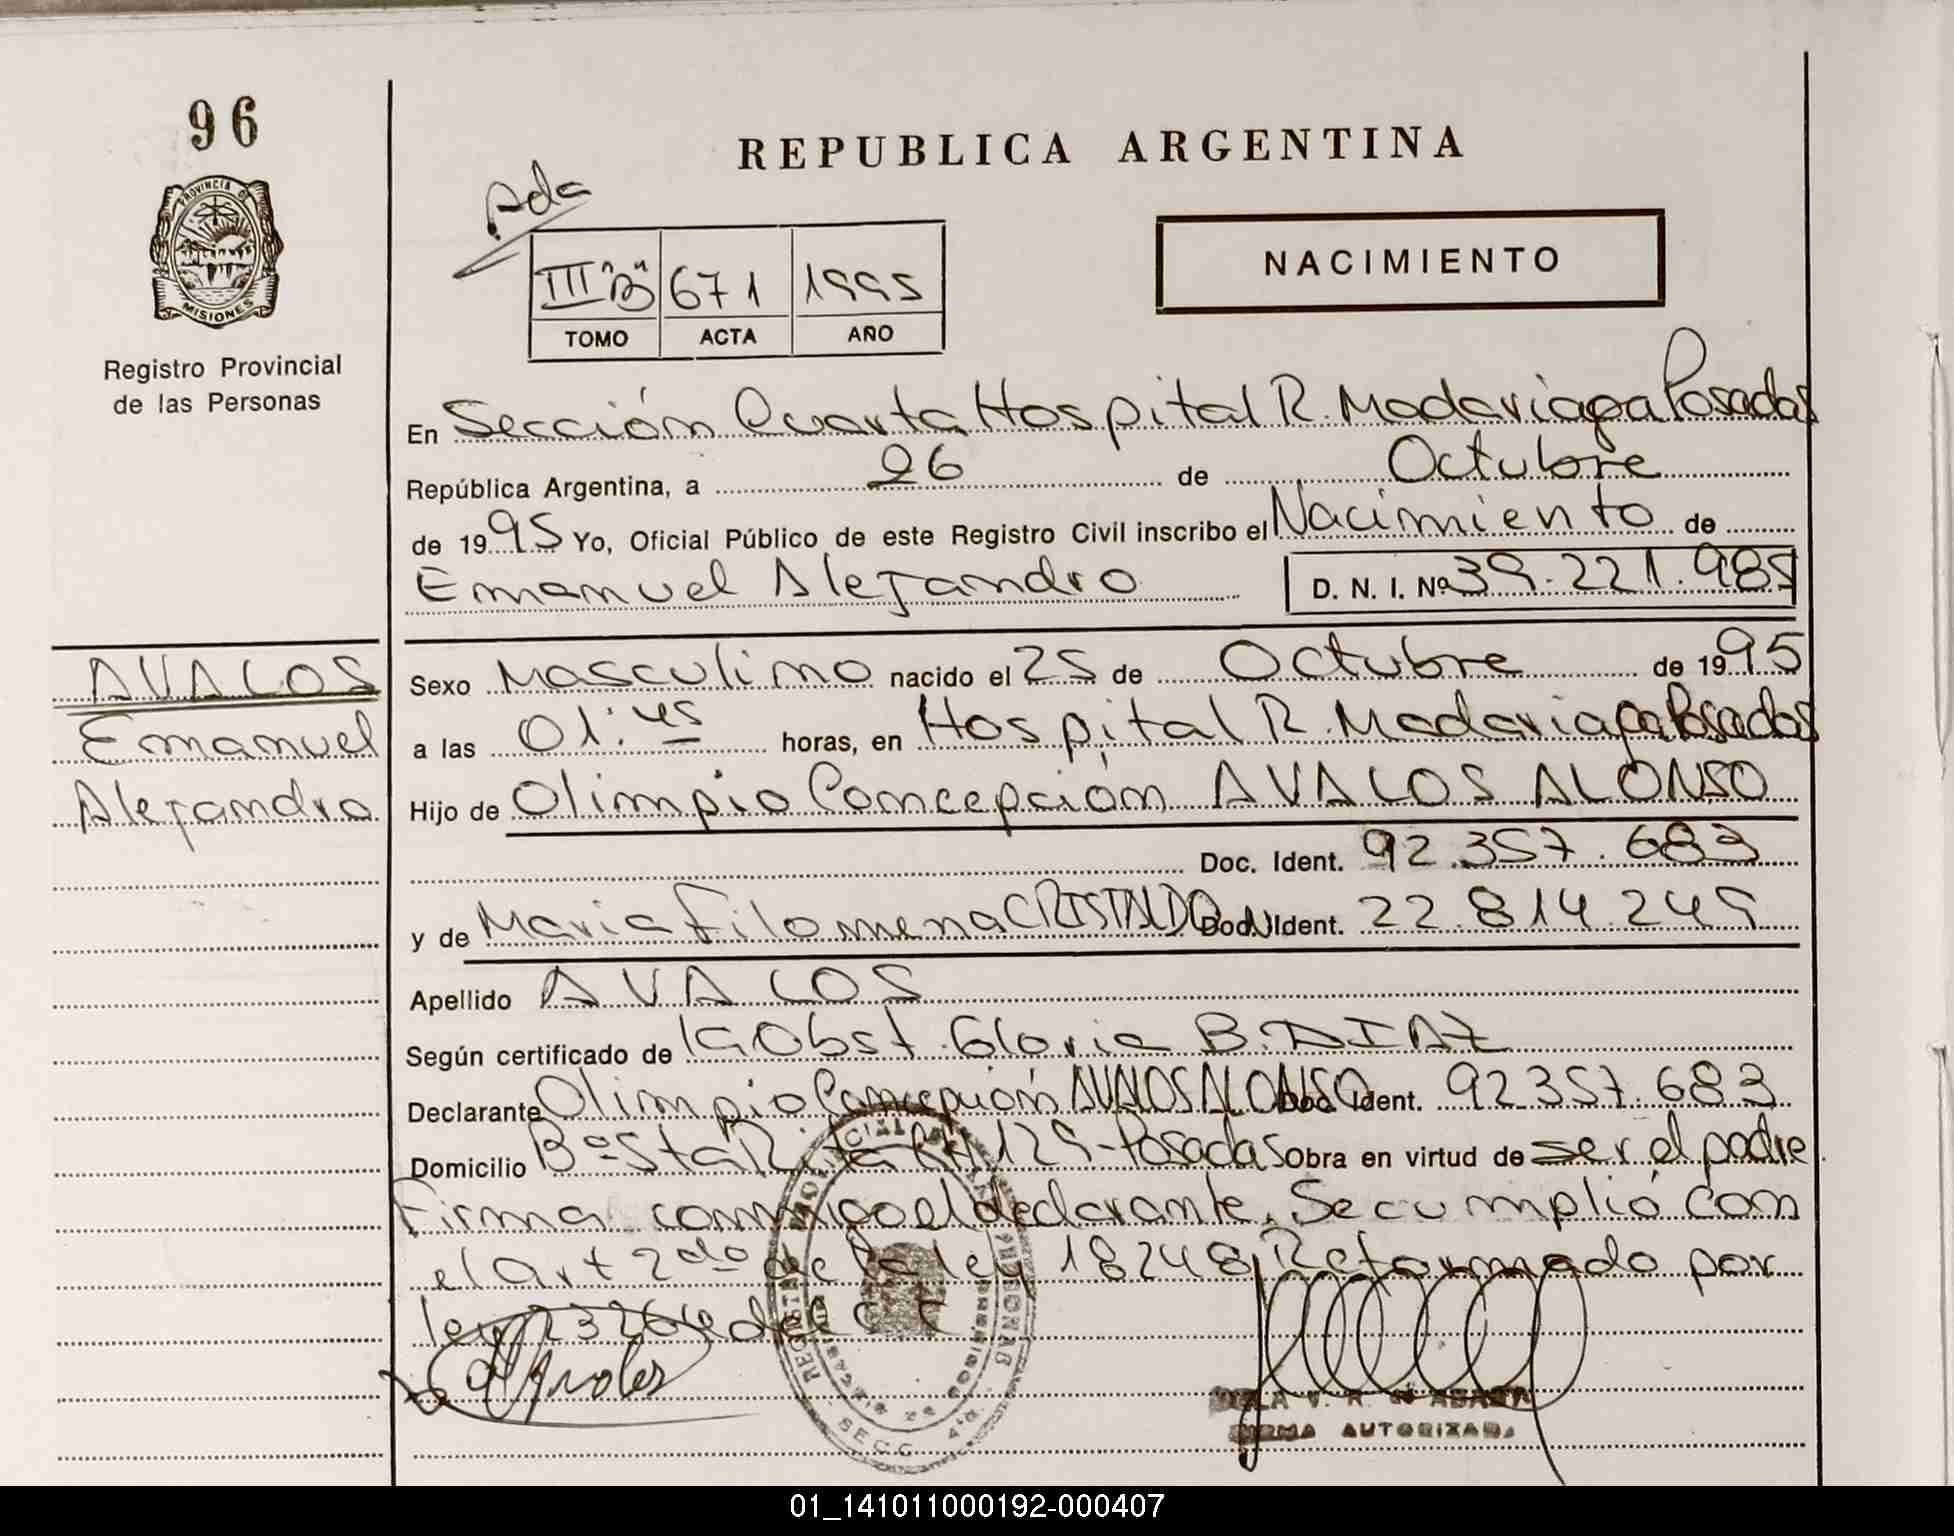 96
PROVINCIA DE
MISIONES
Registro Provincial
de las Personas
REPUBLICA ARGENTINA
Ada
III "B" 671 1995
TOMO ACTA AÑO
NACIMIENTO
En Sección Cuarta Hospital R. Madariaga Posadas
República Argentina, a 26 de Octubre
de 1995 Yo, Oficial Público de este Registro Civil inscribo el Nacimiento de
Emanuel Alejandro D. N. I. Nº 39.221.985
AVALOS
Emanuel
Alejandro
Sexo Masculino nacido el 25 de Octubre de 1995
a las 01:45 horas, en Hospital R. Madariaga Posadas
Hijo de Olimpio Concepción AVALOS ALONSO
Doc. Ident. 92.357.683
y de Maria Filomena CRISTALDO Doc. Ident. 22.814.245
Apellido AVALOS
Según certificado de Obst. Gloria B. DIAZ
Declarante Olimpio Concepción AVALOS ALONSO Doc. Ident. 92357.683
Domicilio Bº Sta Rita 125-Posadas Obra en virtud de ser el padre
Firma conmigo el declarante. Se cumplió con
el art 2do de la ley 18248 Reformado por
ley 23264 de
SECC. 4ª
FIRMA AUTORIZADA
01_141011000192-000407